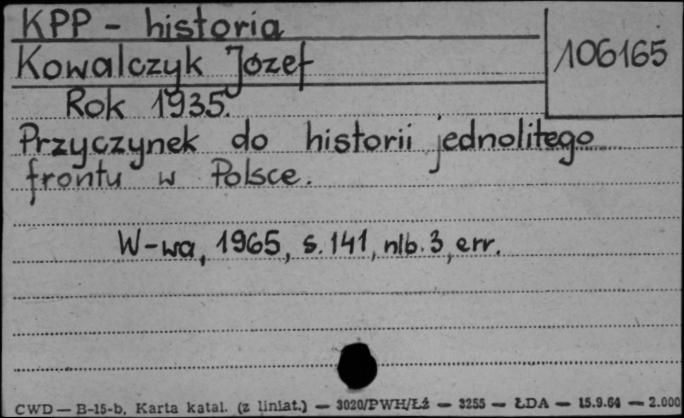 KPP - historia
Kowalczyk Józef
106165
Rok 1935.
Przyczynek do historii jednolitego
frontu w Polsce.
W-wa, 1965, s. 141, nlb. 3, err.
CWD — B-15-b, Karta katal. (z liniat.) — 3020/PWH/Łż — 3255 — ŁDA — 15.9.64 — 2.000